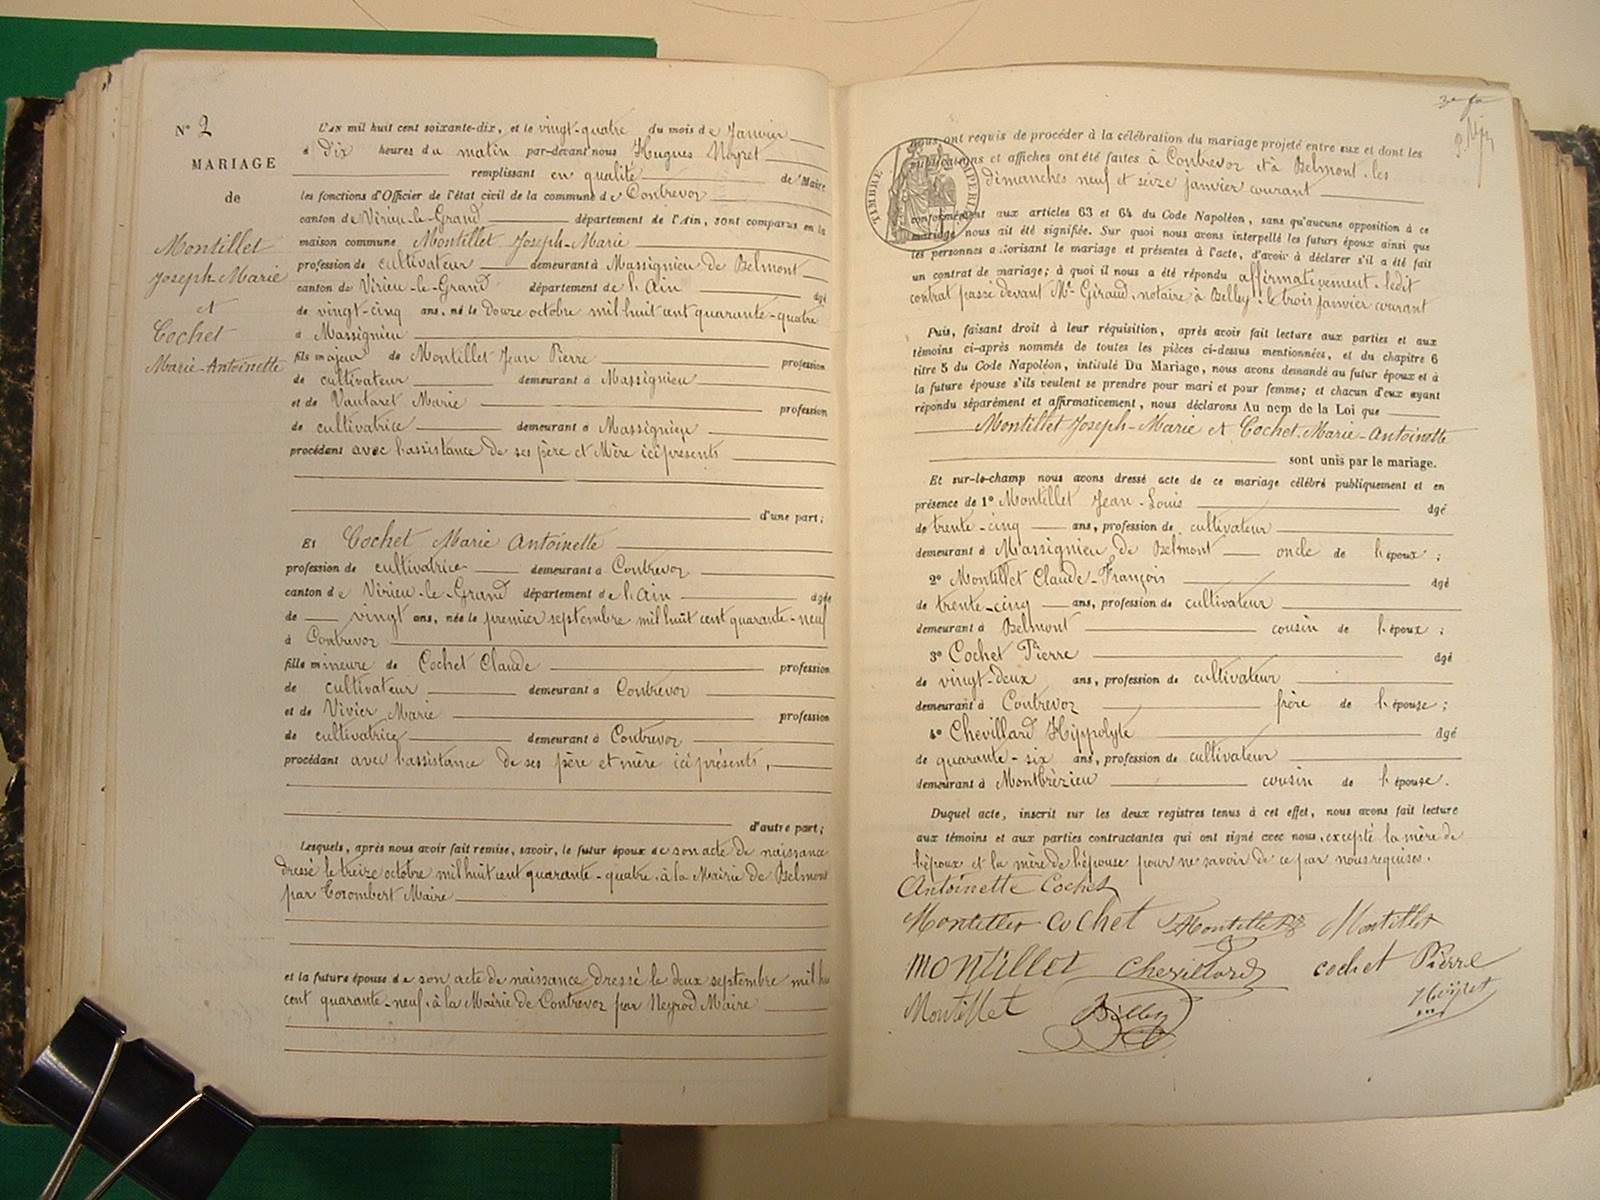 N° 2
MARIAGE
de
Montillet
Joseph Marie
et
Cochet
Marie-Antoinette
L'AN mil huit cent soixante-dix, et le vingt-quatre du mois de Janvier
à Dix heures du matin par-devant nous Hugues Neyret
remplissant en qualité de Maire
les fonctions d'Officier de l'état civil de la commune de Contrevoz
canton de Virieu-le-Grand département de l'Ain, sont comparus en la
maison commune Montillet Joseph-Marie
profession de cultivateur demeurant à Massignieu de Belmont
canton de Virieu-le-Grand département de l'Ain âgé
de vingt-cinq ans, né le Douze octobre mil huit cent quarante-quatre
à Massignieu
fils majeur de Montillet Jean Pierre profession
de cultivateur demeurant à Massignieu
et de Vautaret Marie profession
de cultivatrice demeurant à Massignieu
procédant avec l'assistance de ses père et Mère ici présents
d'une part;
Et Cochet Marie Antoinette
profession de cultivatrice demeurant à Contrevoz
canton de Virieu-le-Grand département de l'ain âgée
de vingt ans, née le premier septembre mil huit cent quarante-neuf
à Contrevoz
fille mineure de Cochet Claude profession
de cultivateur demeurant à Contrevoz
et de Vivier Marie profession
de cultivatrice demeurant à Contrevoz
procédant avec l'assistance de ses père et mère ici présents,
d'autre part;
Lesquels, après nous avoir fait remise, savoir, le futur époux de son acte de naissance
dressé le treize octobre mil huit cent quarante-quatre, à la Mairie de Belmont
par Corombert Maire
et la future épouse de son acte de naissance dressé le deux septembre mil hui
cent quarante-neuf, à la Mairie de Contrevoz par Neyrod Maire
TIMBRE IMPERIAL
nous ont requis de procéder à la célébration du mariage projeté entre eux et dont les
publications et affiches ont été faites à Contrevoz et à Belmont, les
dimanches neuf et seize janvier courant
conformément aux articles 63 et 64 du Code Napoléon, sans qu'aucune opposition à ce
mariage nous ait été signifiée. Sur quoi nous avons interpellé les futurs époux ainsi que
les personnes autorisant le mariage et présentes à l'acte, d'avoir à déclarer s'il a été fait
un contrat de mariage; à quoi il nous a été répondu affirmativement, ledit
contrat passé devant Me Giraud, notaire à Belley, le trois janvier courant
Puis, faisant droit à leur réquisition, après avoir fait lecture aux parties et aux
témoins ci-après nommés de toutes les pièces ci-dessus mentionnées, et du chapitre 6
titre 5 du Code Napoléon, intitulé Du Mariage, nous avons demandé au futur époux et à
la future épouse s'ils veulent se prendre pour mari et pour femme; et chacun d'eux ayant
répondu séparément et affirmativement, nous déclarons Au nom de la Loi que
Montillet Joseph-Marie et Cochet Marie-Antoinette
sont unis par le mariage.
Et sur-le-champ nous avons dressé acte de ce mariage célébré publiquement et en
présence de 1° Montillet Jean-Louis âgé
de trente-cinq ans, profession de cultivateur
demeurant à Massignieu de Belmont oncle de l'époux;
2° Montillet Claude-François âgé
de trente-cinq ans, profession de cultivateur
demeurant à Belmont cousin de l'époux;
3° Cochet Pierre âgé
de vingt-deux ans, profession de cultivateur
demeurant à Contrevoz frère de l'épouse;
4° Chevillard Hippolyte âgé
de quarante-six ans, profession de cultivateur
demeurant à Montbrézieu cousin de l'épouse.
Duquel acte, inscrit sur les deux registres tenus à cet effet, nous avons fait lecture
aux témoins et aux parties contractantes qui ont signé avec nous, excepté la mère de
l'époux et la mère de l'épouse pour ne savoir de ce par nous requises.
Antoinette Cochet
Montillet cochet Montillet Montillet
montillet Chevillard cochet Pierre
Montillet Billey Neyret